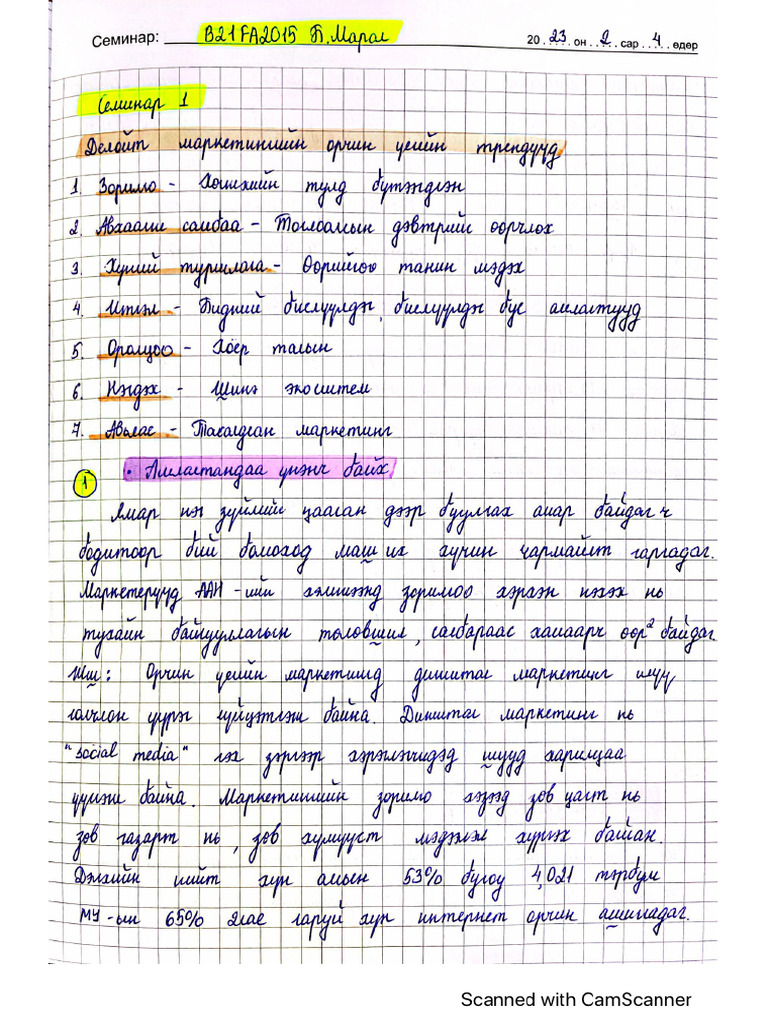 Семинар: B21FA2015 Б.Марал 2023 он 2 сар 4 өдөр
Семинар 1
Делойт маркетингийн орчин үеийн трендүүд
1. Зорилго - Хөгжлийн тулд бүтээгдсэн
2. Авхаалж самбаа - Тоглоомын дэвтрийг өөрчлөх
3. Хүний туршлага - Өөрийгөө танин мэдэх
4. Итгэл - Бидний биелүүлдэг, биелүүлдэг бус амлалтууд
5. Оролцоо - Хоёр талын
6. Нэгдэх - Шинэ экосистем
7. Авьяас - Тасалдсан маркетинг
1 • Амлалтандаа үнэнч байх
Ямар нэг зүйлийг цаасан дээр буулгах амар байдаг ч
бодитоор бий болгоход маш их хүчин чармайлт гаргадаг.
Маркетерууд ААН-ийн хэмжээнд зорилгоо хэрхэн нээх нь
тухайн байгууллагын төлөвшил, салбараас хамаарч өөр² байдаг.
Жиш: Орчин үеийн маркетингд дижитал маркетинг илүү
голчлон үүрэг гүйцэтгэж байна. Дижитал маркетинг нь
"social media" гэх зэргээр хэрэглэгчидэд шууд харилцаа
үүсгэж байна. Маркетингийн зорилго хэзээд зөв цагт нь
зөв газарт нь, зөв хүмүүст мэдээлэл хүргэх байсан.
Дэлхийн нийт хүн амын 53% буюу 4,021 тэрбум
МУ-ын 65% гаруй хүн интернет орчин ашигладаг.
Scanned with CamScanner